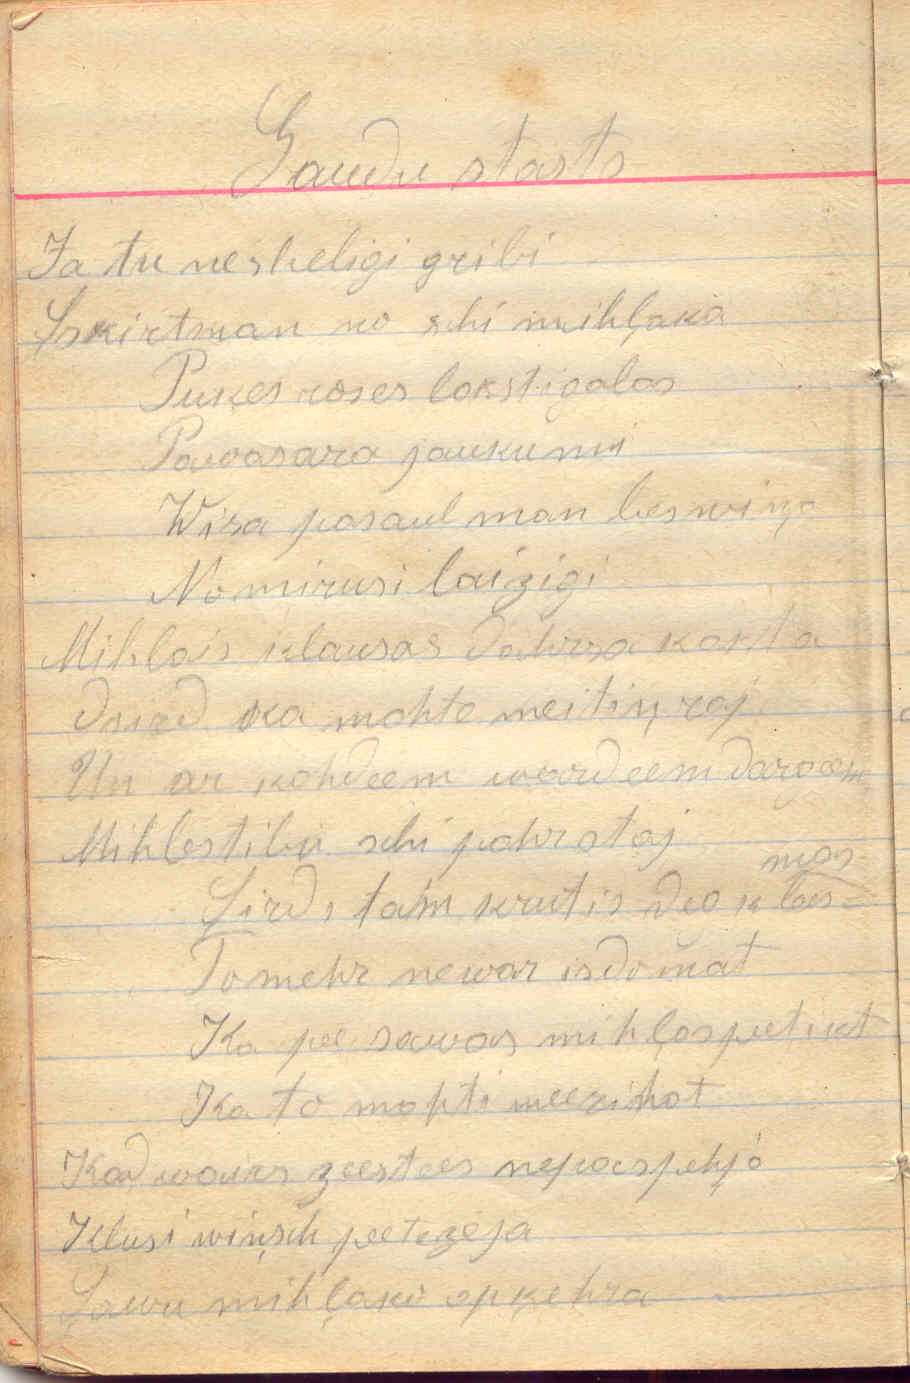 Gaudu stasts
Ja tu neskeligi gribi
Isskirt man no schi mihļaka
Pukes roses lokstigalas
Pawasara jaukumi
Wisa pasaul man bes wiņa
Nomirusi laizigi
Mihlais klausas dahrsa kakta
dsied ka mahte meitiņ raj
Un ar kahdeem wardeem dargeem
Mihlestibu schi pahrstaj
Sirds tam krutis deg k las-
mas
Tomehr newar isdomat
Ka pee sawas mihļas petikt
Ka to mahti meerihat
Kad wairs zeestees nepaespehja
Klusi wiņsch peetezeja
Sawu mihļako apķehra